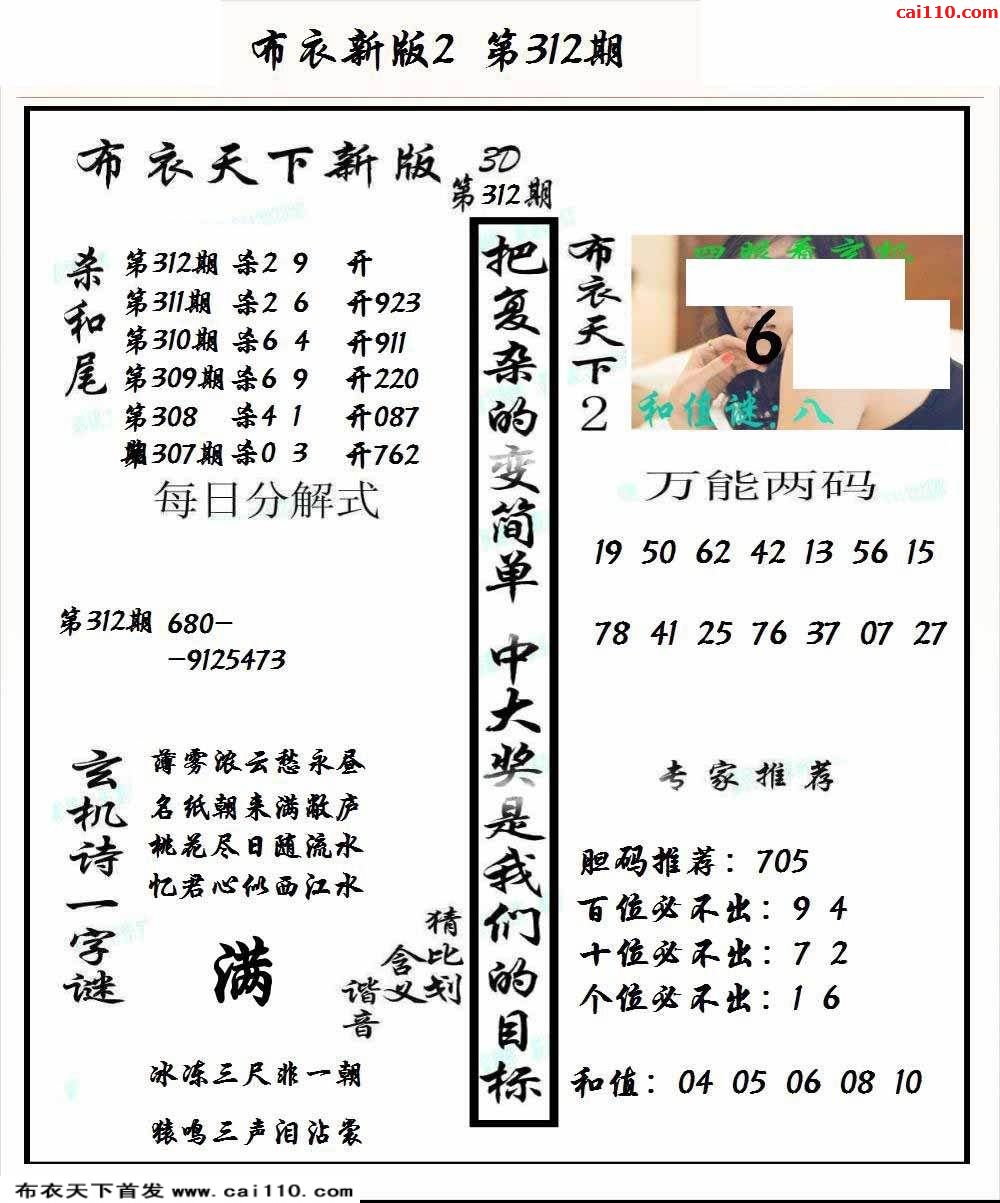 cai110.com
布衣新版2 第312期
布衣天下新版 3D
第312期
杀和尾
第312期 杀2 9 开
第311期 杀2 6 开923
第310期 杀6 4 开911
第309期 杀6 9 开220
第308 杀4 1 开087
307期 杀0 3 开762
每日分解式
第312期 680-
-9125473
玄机诗一字谜
薄雾浓云愁永昼
名纸朝来满敝庐
桃花尽日随流水
忆君心似西江水
满
猜比划
含义
谐音
冰冻三尺非一朝
猿鸣三声泪沾裳
把复杂的变简单 中大奖是我们的目标
布衣天下2
四眼看玄机
6
和值谜:八
万能两码
19 50 62 42 13 56 15
78 41 25 76 37 07 27
专家推荐
胆码推荐：705
百位必不出：9 4
十位必不出：7 2
个位必不出：1 6
和值：04 05 06 08 10
布衣天下首发 www.cai110.com